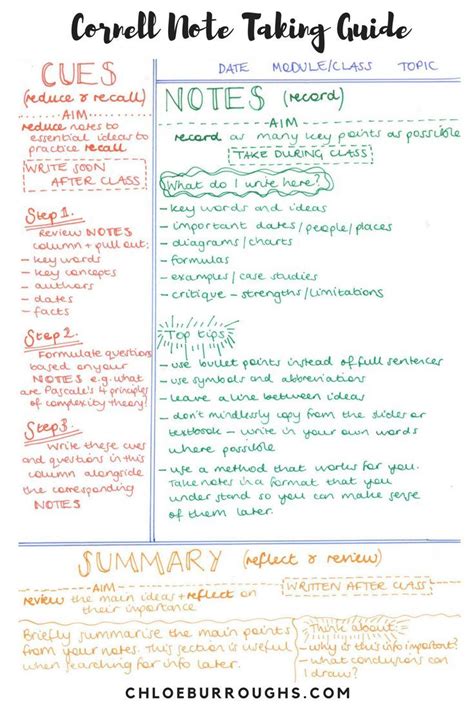 Cornell Note Taking Guide
DATE MODULE/CLASS TOPIC
CUES
(reduce & recall)
AIM
reduce notes to
essential ideas to
practice recall
WRITE SOON
AFTER CLASS
Step 1.
Review NOTES
column + pull out:
- key words
- key concepts
- authors
- dates
- facts
Step 2.
Formulate questions
based on your
NOTES e.g. what
are Pascale's 4 principles
of complexity theory?
Step 3.
Write these cues
and questions in this
column alongside
the corresponding
NOTES
NOTES (record)
AIM
record as many key points as possible
TAKE DURING CLASS
What do I write here?
- key words and ideas
- important dates/people/places
- diagrams/charts
- formulas
- examples/case studies
- critique - strengths/limitations
Top tips
- use bullet points instead of full sentences
- use symbols and abbreviations
- leave a line between ideas
- don't mindlessly copy from the slides or
textbook - write in your own words
where possible
- use a method that works for you.
Take notes in a format that you
understand so you can make sense
of them later.
SUMMARY (reflect & review)
AIM
review the main ideas + reflect on
their importance
WRITTEN AFTER CLASS
Briefly summarise the main points
from your notes. This section is useful
when searching for info later.
Think about:
- why is this info important?
- what conclusions can
I draw?
CHLOEBURROUGHS.COM